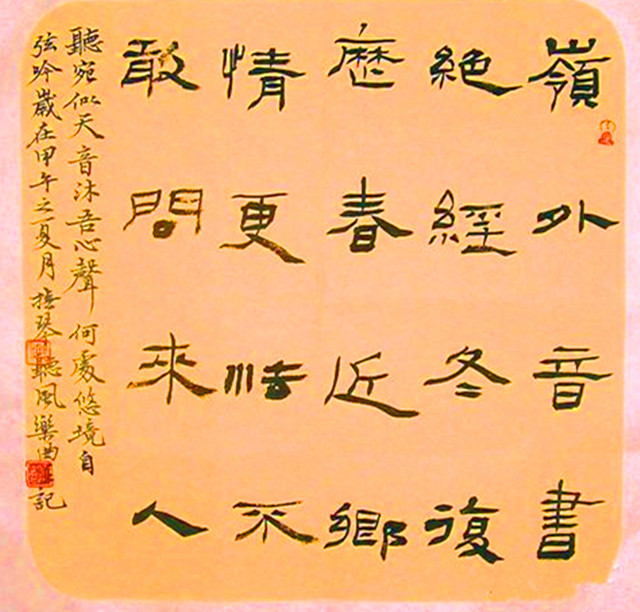 嶺外音書
絶經冬復
歷春近鄉
情更怯不
敢問來人
聽宛似天音沐吾心聲何處悠境自
弦吟歲在甲午之夏月琴聽風樂曲記